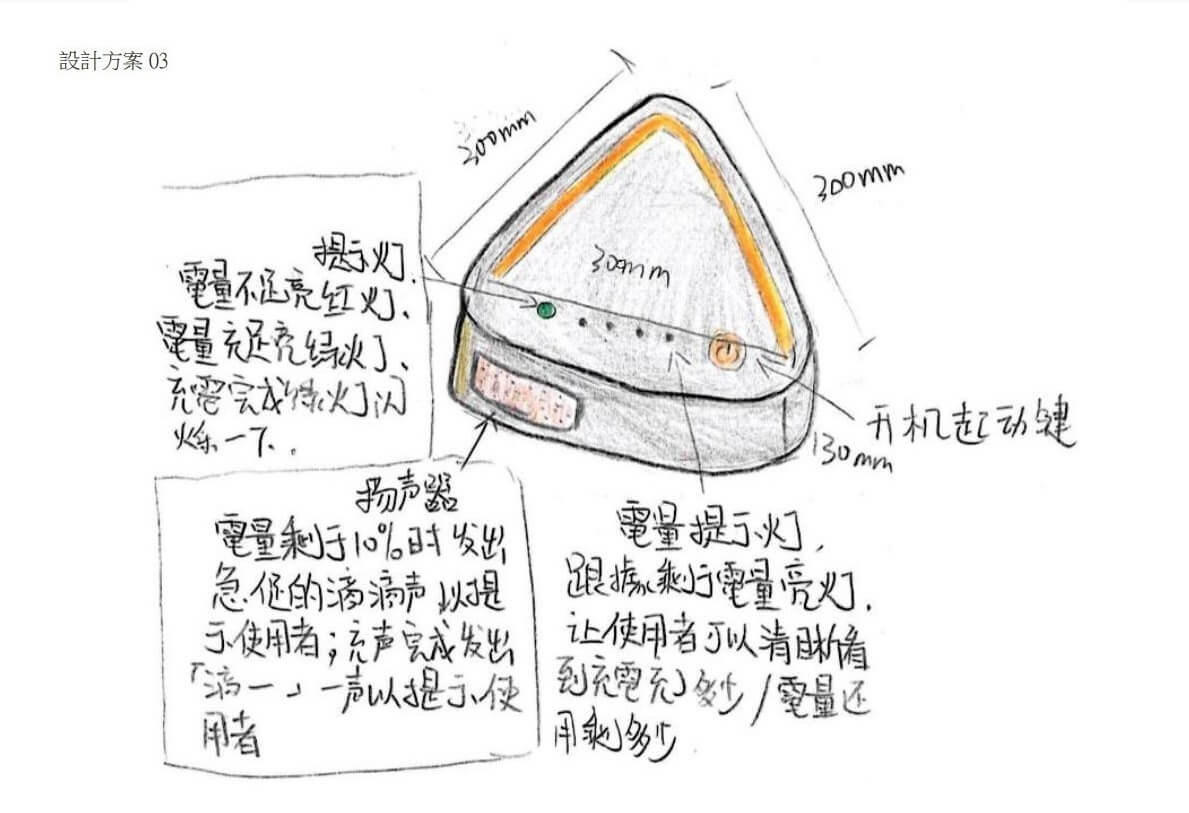 設計方案 03
300mm
300mm
300mm
130mm
提示灯.
電量不足亮红灯、
電量充足亮绿灯、
充電完成绿灯闪
烁一下.
开机起动键
扬声器
電量剩于10%时发出
急促的滴滴声以提
示使用者;充声完成发出
「滴一」一声以提示使
用者
電量提示灯,
跟據剩于電量亮灯.
让使用者可以清晰看
到充電充了多少/電量还
用剩多少.